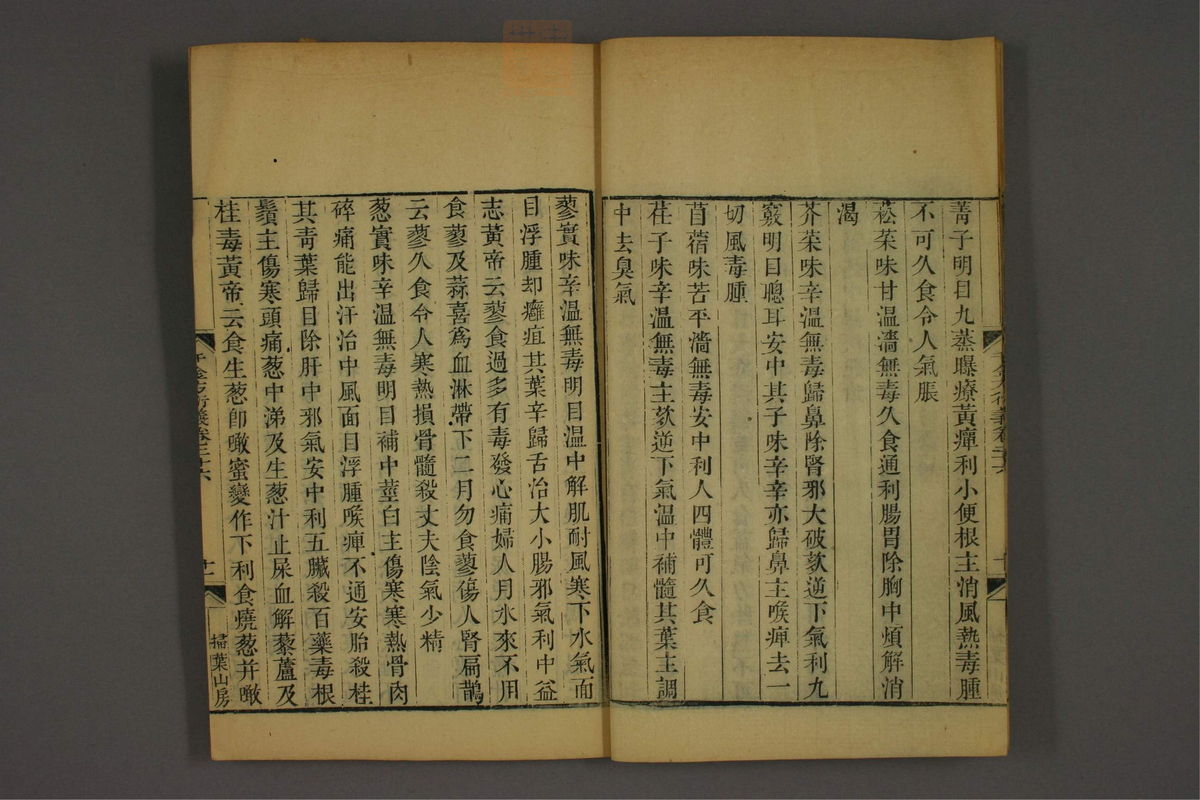 菁子明目九蒸曝療黃癉利小便根主消風熱毒腫
不可久食令人氣脹
菘菜味甘溫濇無毒久食通利腸胃除胸中煩解消
渴
芥菜味辛溫無毒歸鼻除腎邪大破欬逆下氣利九
竅明目聰耳安中其子味辛辛亦歸鼻主喉痺去一
切風毒腫
苜蓿味苦平濇無毒安中利人四體可久食
荏子味辛溫無毒主欬逆下氣溫中補髓其葉主調
中去臭氣
蓼實味辛溫無毒明目溫中解肌耐風寒下水氣面
目浮腫却癰疽其葉辛歸舌治大小腸邪氣利中益
志黃帝云蓼食過多有毒發心痛婦人月水來不用
食蓼及蒜喜爲血淋帶下二月勿食蓼傷人腎扁鵲
云蓼久食令人寒熱損骨髓殺丈夫陰氣少精
葱實味辛溫無毒明目補中莖白主傷寒寒熱骨肉
碎痛能出汗治中風面目浮腫喉痺不通安胎殺桂
其靑葉歸目除肝中邪氣安中利五臟殺百藥毒根
鬚主傷寒頭痛葱中涕及生葱汁止尿血解藜蘆及
桂毒黃帝云食生葱卽噉蜜變作下利食燒葱并噉
千金方衍義卷二十六
十一
掃葉山房